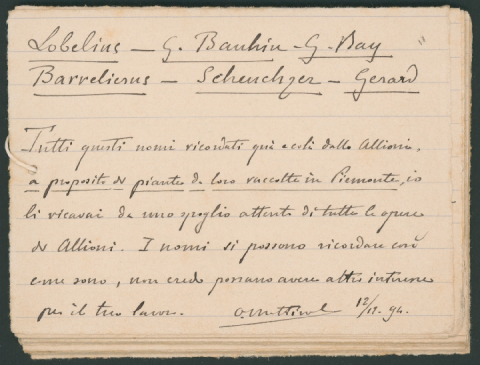 Lobelius – G. Bauhin – G. Bay
Barrelierus – Scheuchzer – Gerard
Tutti questi nomi ricordati quà e colà dallo Allioni,
a proposito di piante da loro raccolte in Piemonte, io
li ricavai da uno spoglio attento di tutte le opere
di Allioni. I nomi si possono ricordare così
come sono, non credo possano avere altro interesse
per il tuo lavoro. O. Mattirolo 12/12. 94.